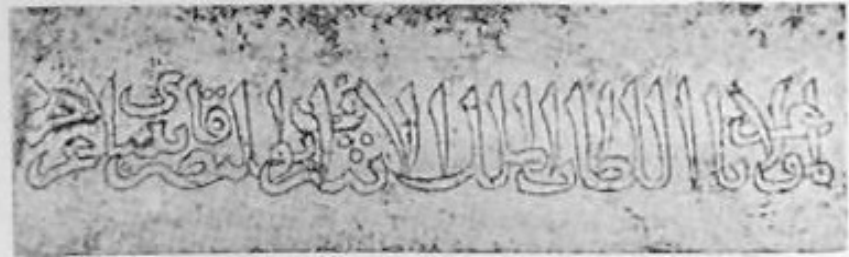 مولانا السلطان الملك الاشرف ابو النصر قايتباي عز